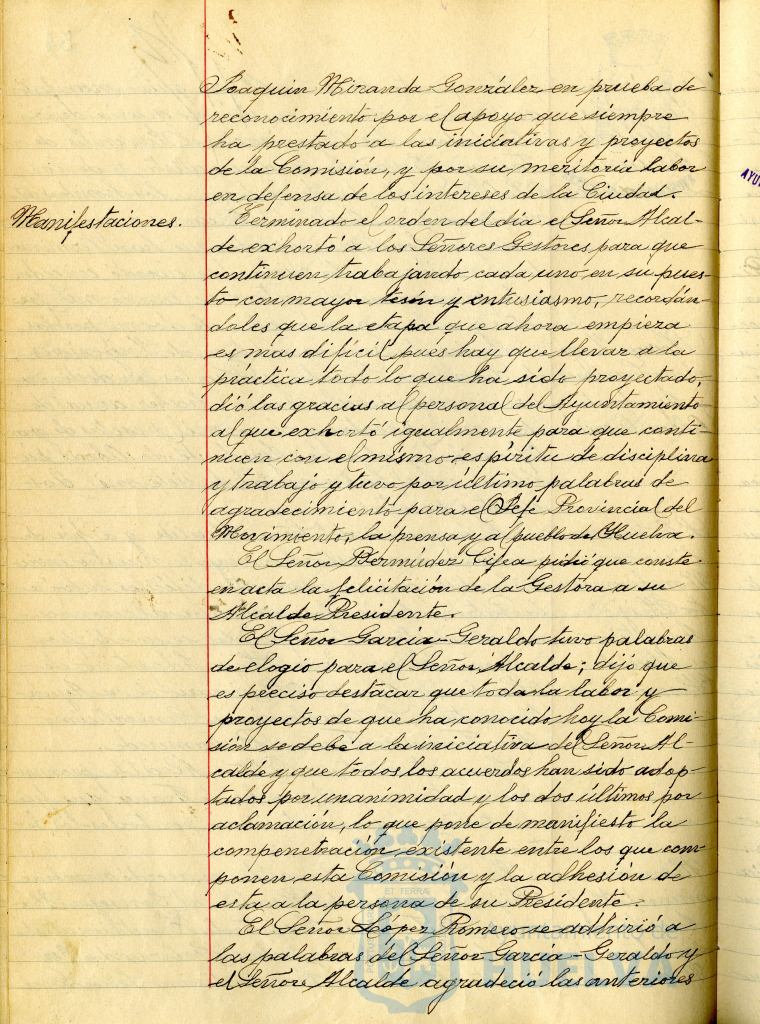 Joaquin Miranda González en prueba de
reconocimiento por el apoyo que siempre
ha prestado a las iniciativas y proyectos
de la Comisión, y por su meritoria labor
en defensa de los intereses de la Ciudad.
Manifestaciones.
Terminado el orden del dia el Señor Alcal-
de exhortó a los Señores Gestores para que
continuen trabajando cada uno en su pues-
to con mayor tesón y entusiasmo, recordán-
doles que la etapa que ahora empieza
es mas dificil pues hay que llevar a la
práctica todo lo que ha sido proyectado,
dió las gracias al personal del Ayuntamiento
al que exhortó igualmente para que conti-
nuen con el mismo espiritu de disciplina
y trabajo y tuvo por último palabras de
agradecimiento para el Jefe Provincial del
Movimiento, la prensa y al pueblo de Huelva.
El Señor Bermúdez Cifea pidió que conste
en acta la felicitación de la Gestora a su
Alcalde Presidente.
El Señor García-Geraldo tuvo palabras
de elogio para el Señor Alcalde; dijo que
es preciso destacar que toda la labor y
proyectos de que ha conocido hoy la Comi-
sión se debe a la iniciativa del Señor Al-
calde y que todos los acuerdos han sido adop-
tados por unanimidad y los dos últimos por
aclamación, lo que pone de manifiesto la
compenetración existente entre los que com-
ponen esta Comisión y la adhesión de
esta a la persona de su Presidente.
El Señor López Romero se adhirió a
las palabras del Señor García-Geraldo y
el Señor Alcalde agradeció las anteriores
ET TERRA
HUELVA
AYU